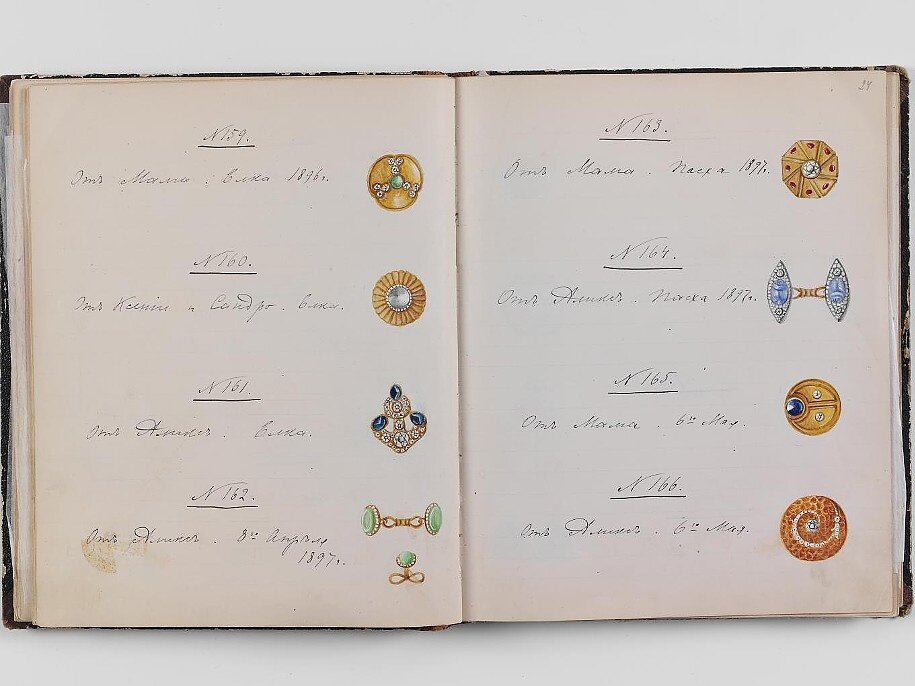 N 159.
Отъ Мама. Елка 1896 г.
N 160.
Отъ Ксеніи и Сандро. Елка.
N 161.
Отъ Аликсъ. Елка.
N 162.
Отъ Аликсъ. 8го Апрѣля
1897 г.
27
N 163.
Отъ Мама. Пасха 1897 г.
N 164.
Отъ Аликсъ. Пасха 1897 г.
N 165.
Отъ Мама. 6го Мая.
N 166.
Отъ Аликсъ. 6го Мая.